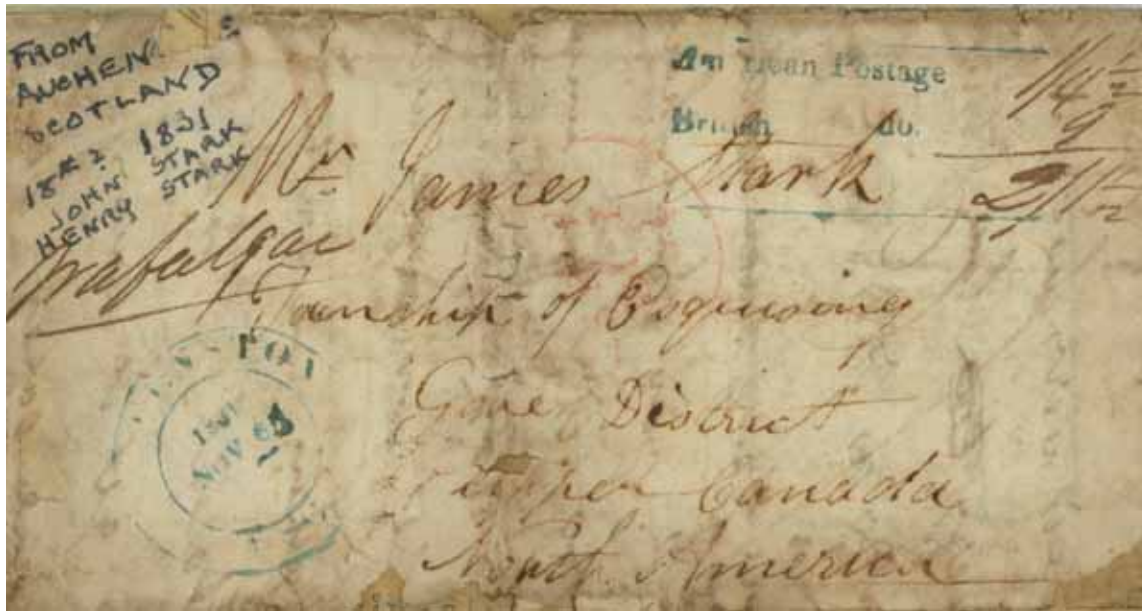 FROM
AUCHEN
SCOTLAND
18th ? 1831
JOHN STARK
HENRY STARK
American Postage 1/4½
British do. 9
2/1½
Mr James Stark
Trafalgar
Township of Esquising
Gore District
Upper Canada
North America
NOV